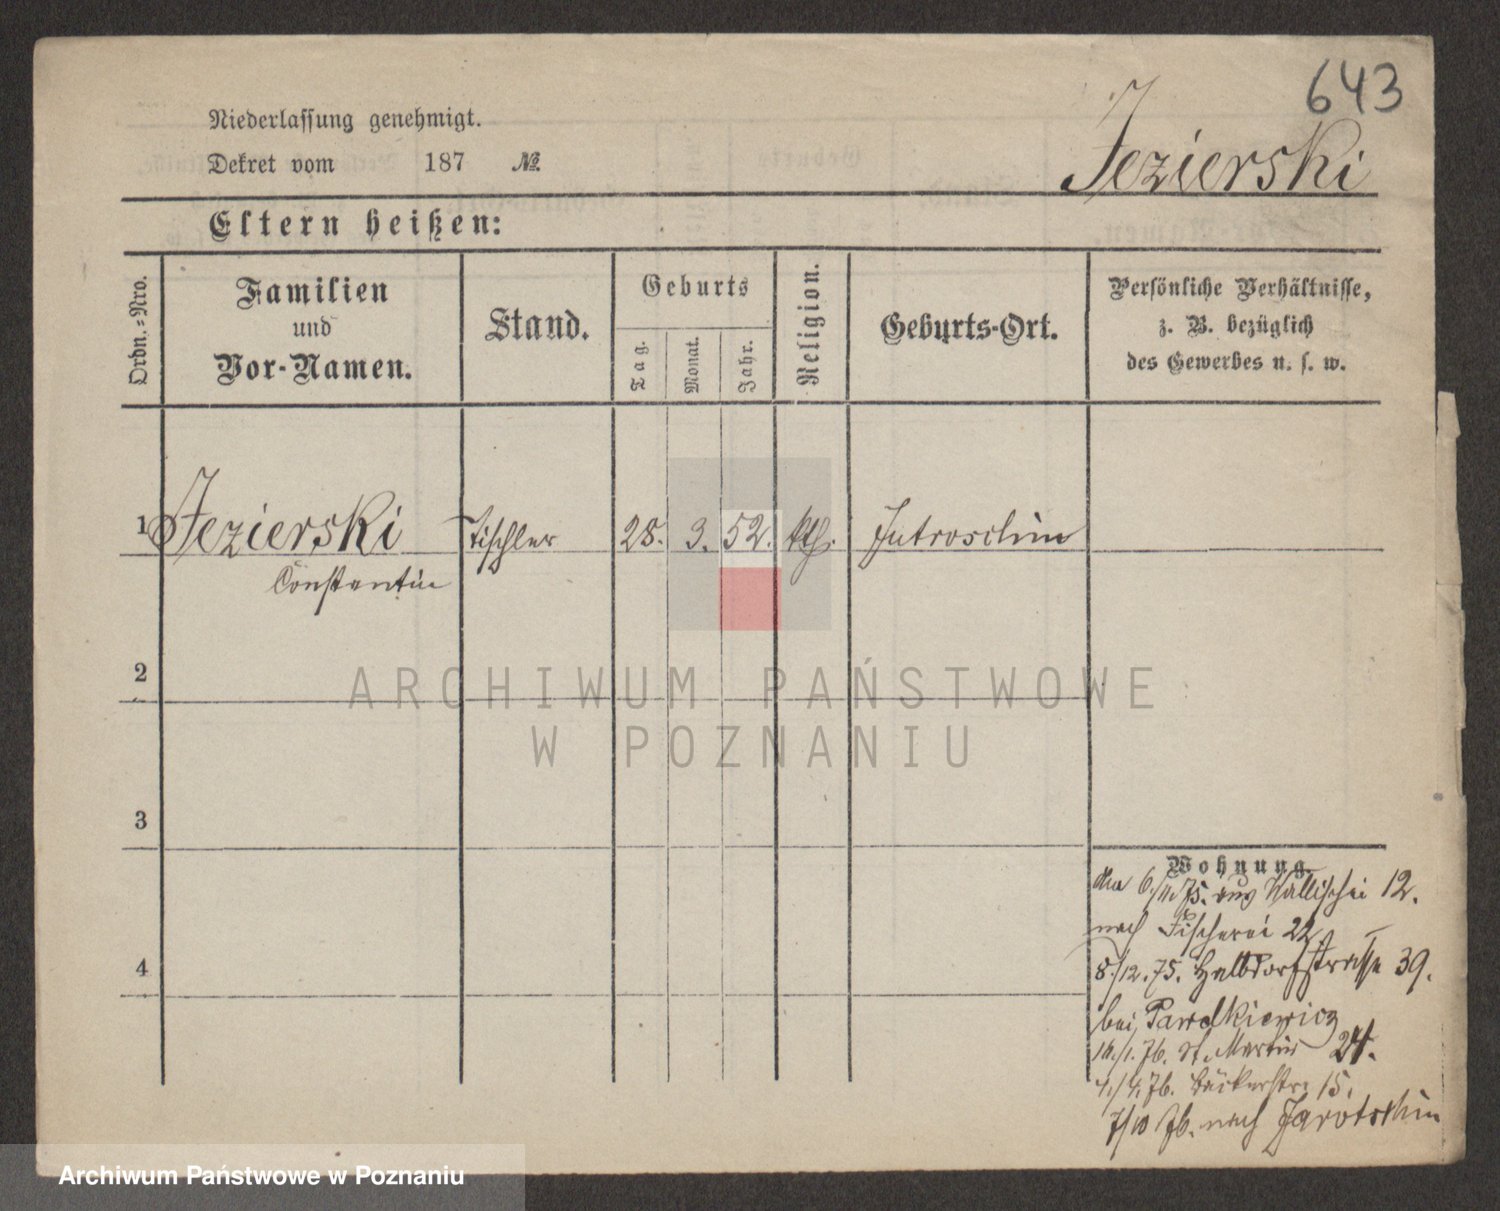 643
Niederlassung genehmigt.
Dekret vom 187 №.
Jezierski
Eltern heißen:
Ordn.=Nro.
Familien
und
Vor-Namen.
Stand.
Geburts
Tag.
Monat.
Jahr.
Religion.
Geburts-Ort.
Persönliche Verhältnisse,
z. B. bezüglich
des Gewerbes u. s. w.
1 Jezierski Tischler 28. 3. 52. kth. Jutroschin
Constantin
2
3
4
Wohnung.
den 6./11.75. aus Wallischei 12.
nach Fischerei 22
8./12.75. Halbdorfstrasse 39.
bei Pawelkiewicz
1./76. St. Martin 24.
4./4.76. Bäckerstr. 15.
7/10 76. nach Jarotschin
ARCHIWUM PAŃSTWOWE
W POZNANIU
Archiwum Państwowe w Poznaniu